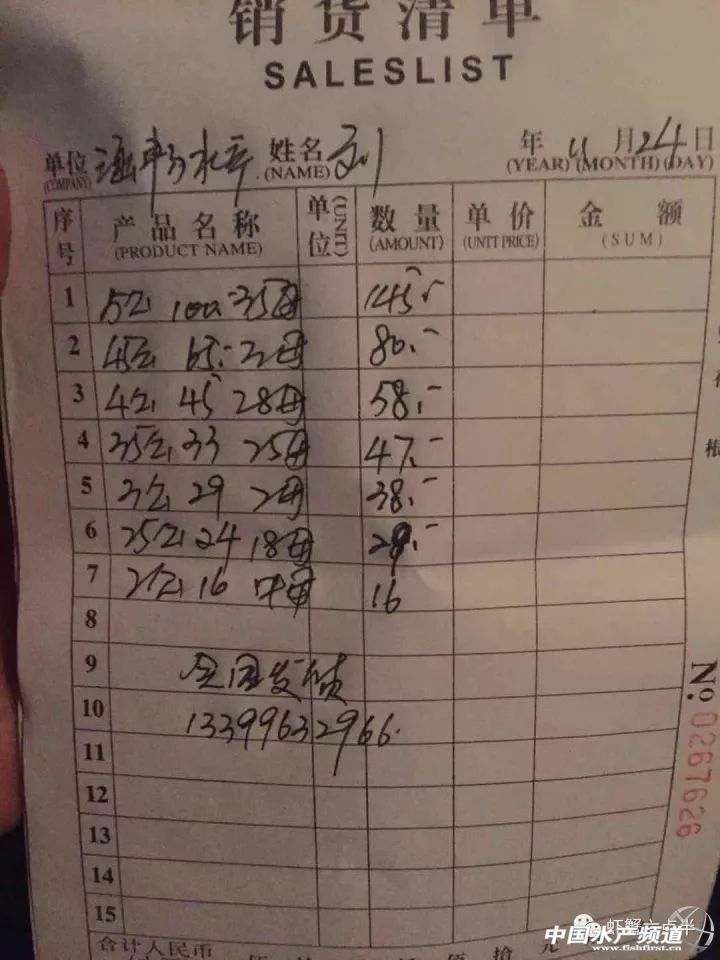 销货清单
SALESLIST
单位 姓名 刘 年 11 月 24 日
(COMPANY) (NAME) (YEAR) (MONTH) (DAY)
序号 产品名称 单位 数量 单价 金额
(PRODUCT NAME) (UNIT) (AMOUNT) (UNTT PRICE) (SUM)
1 5公 100 35母 145
2 45公 65.- 3母 80.-
3 4公 45 28母 58.-
4 35公 33 25母 47.-
5 3公 29 2母 38.-
6 25公 24 18母 29.-
7 2公 16 母 16
8
9 全国发货
10 13399632966.
11
12
13
14
15
合计人民币 佰 拾 元
No. 0267626
虾蟹六点半
中国水产频道
www.fishfirst.cn